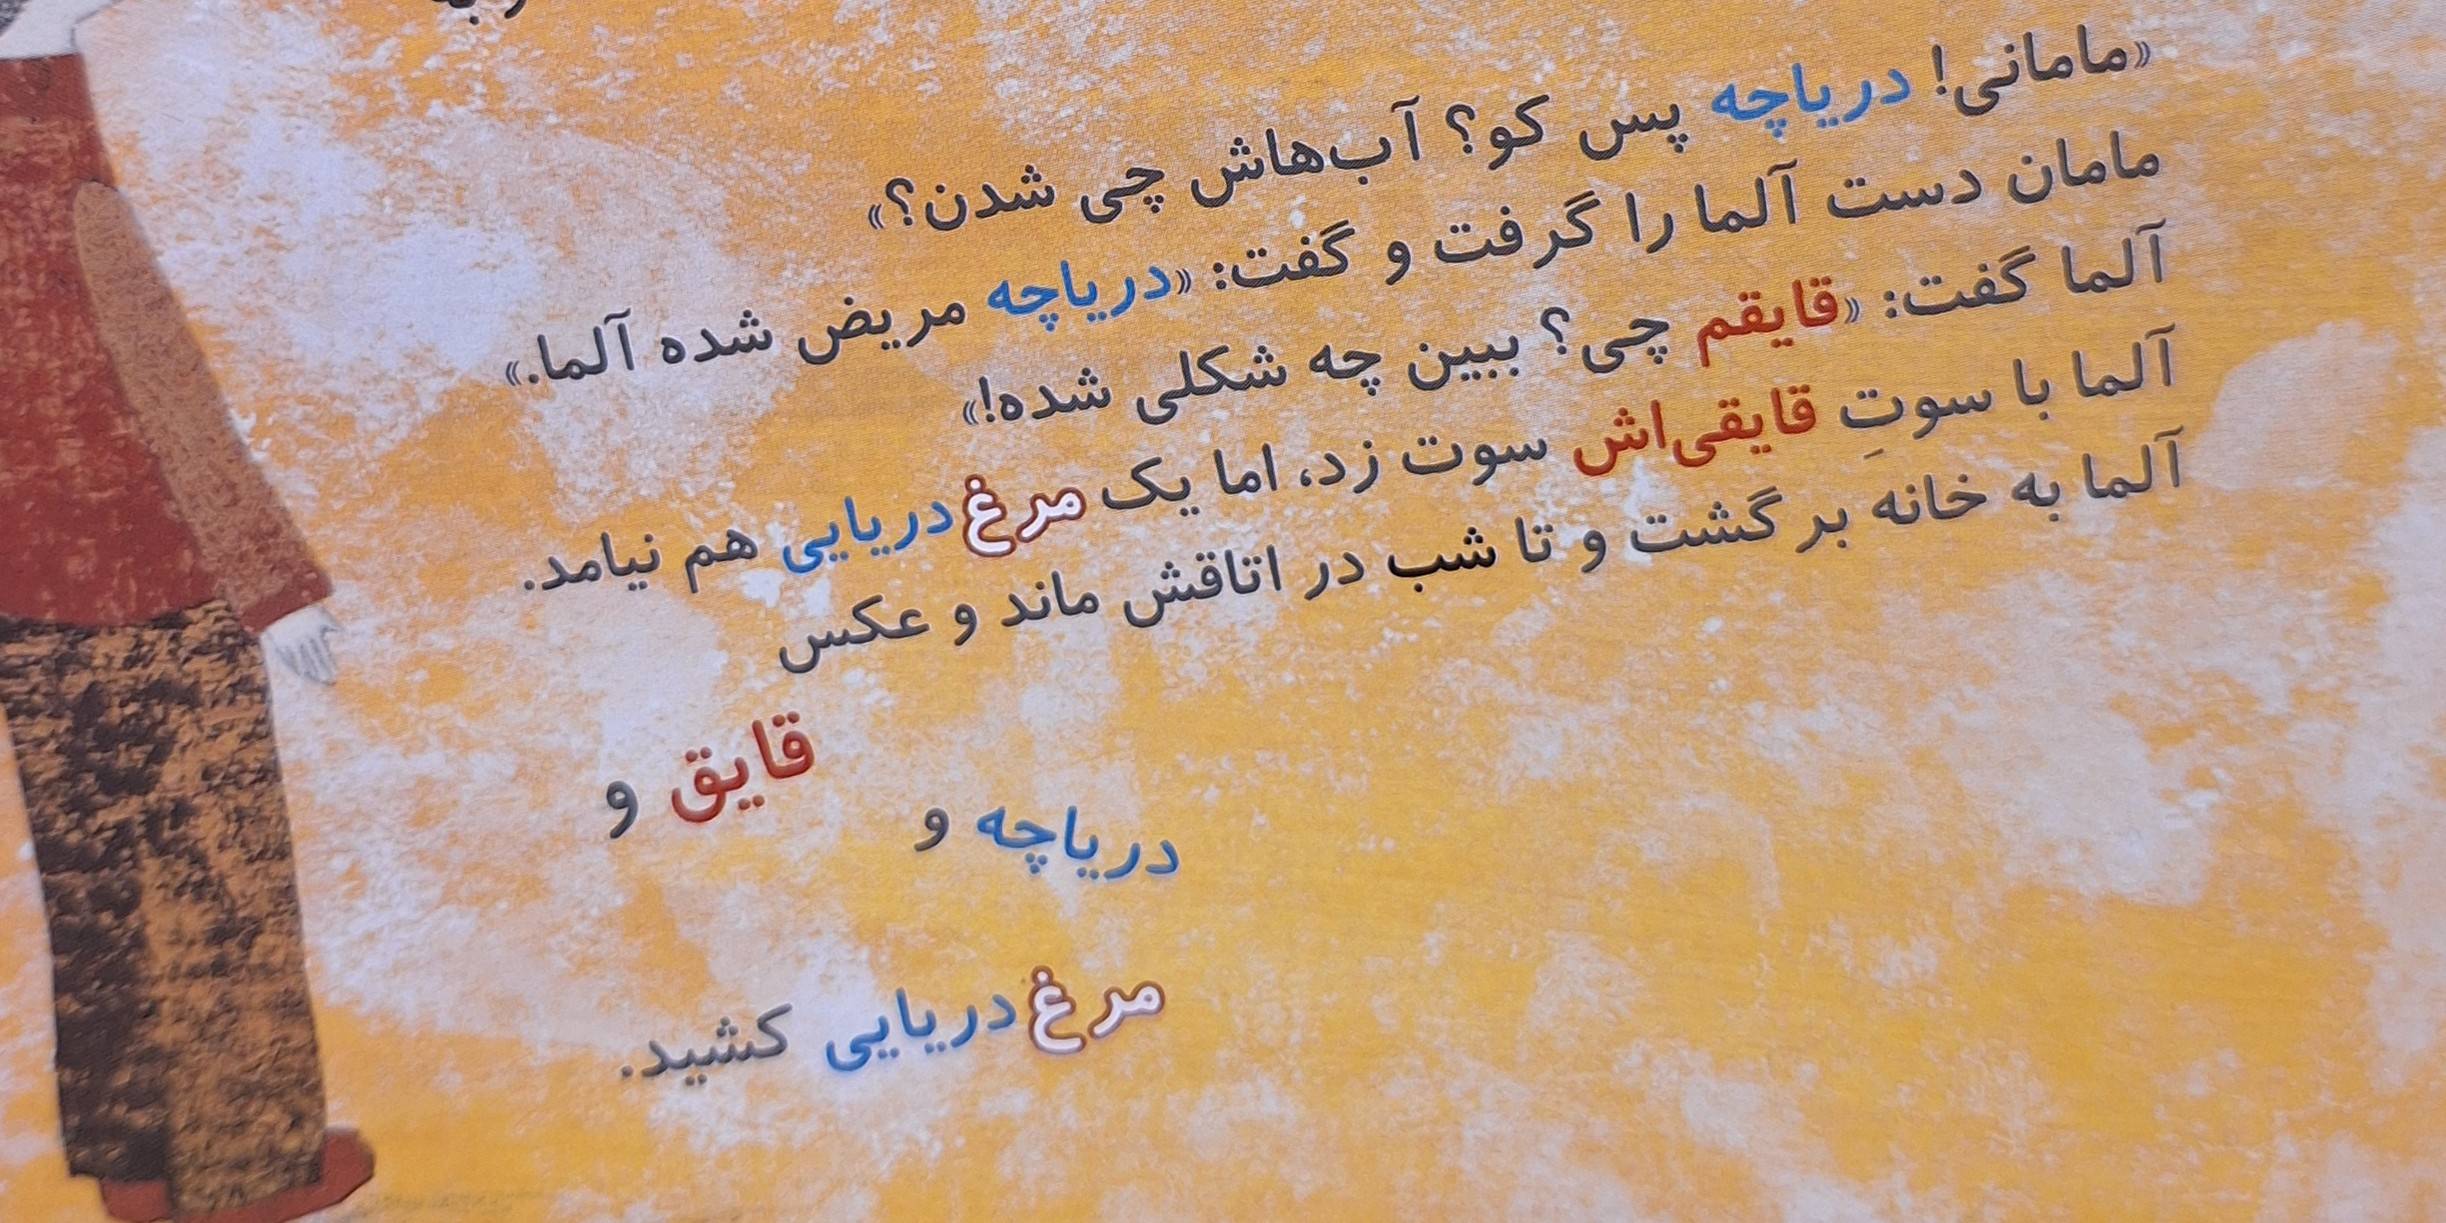 «مامانی! دریاچه پس کو؟ آب‌هاش چی شدن؟»
مامان دست آلما را گرفت و گفت: «دریاچه مریض شده آلما.»
آلما گفت: «قایقم چی؟ ببین چه شکلی شده!»
آلما با سوتِ قایقی‌اش سوت زد، اما یک مرغ دریایی هم نیامد.
آلما به خانه برگشت و تا شب در اتاقش ماند و عکس
قایق و
دریاچه و
مرغ دریایی کشید.